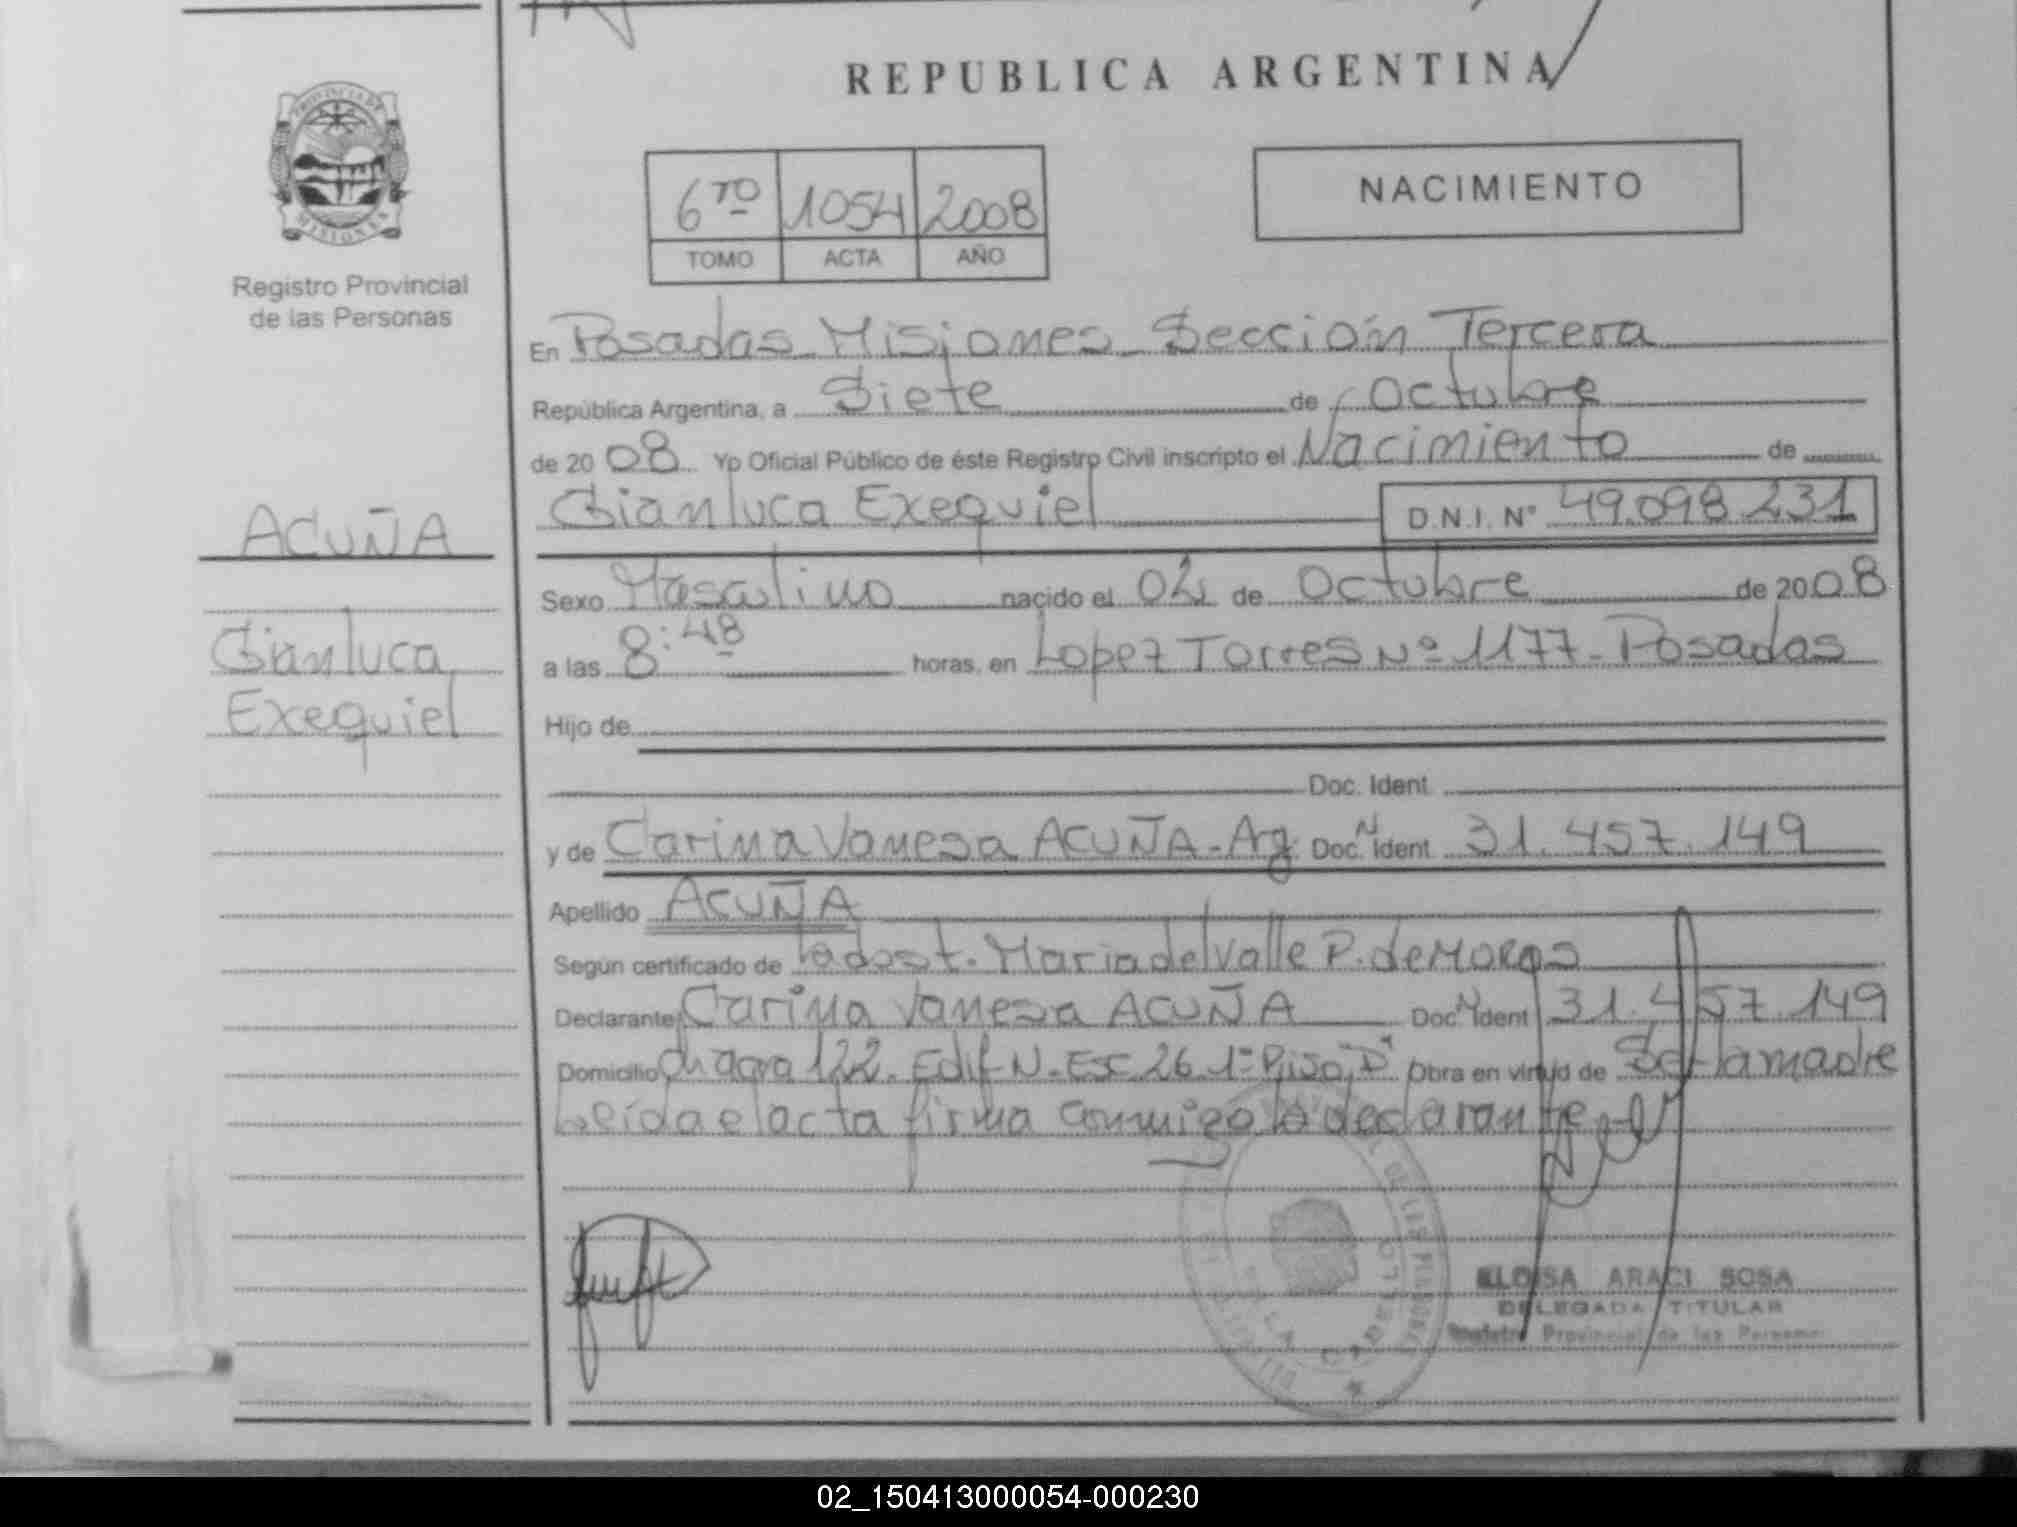 REPUBLICA ARGENTINA
PROVINCIA DE
MISIONES
Registro Provincial
de las Personas
6TO 1054 2008
TOMO ACTA AÑO
NACIMIENTO
En Posadas Misiones Sección Tercera
República Argentina, a Siete de Octubre
de 2008 Yo Oficial Público de éste Registro Civil inscripto el Nacimiento de
Gianluca Exequiel D.N.I. Nº 49.098.231
ACUÑA
Gianluca
Exequiel
Sexo Masculino nacido el 02 de Octubre de 2008
a las 8:48 horas, en Lopez Torres Nº 1177-Posadas
Hijo de
Doc. Ident
y de Carina Vanesa ACUÑA-Arg Doc. N Ident 31.457.149
Apellido ACUÑA
Según certificado de la obst. Maria del Valle P. de
Declarante Carina Vanesa ACUÑA Doc N Ident 31.457.149
Domicilio Chacra 122. Edif N-Esc 26.1º Piso "D" Obra en virtud de Ser la madre
Leída el acta firma conmigo la declarante
ELOISA ARACI SOSA
DELEGADA TITULAR
Registro Provincial de las Personas
02_150413000054-000230